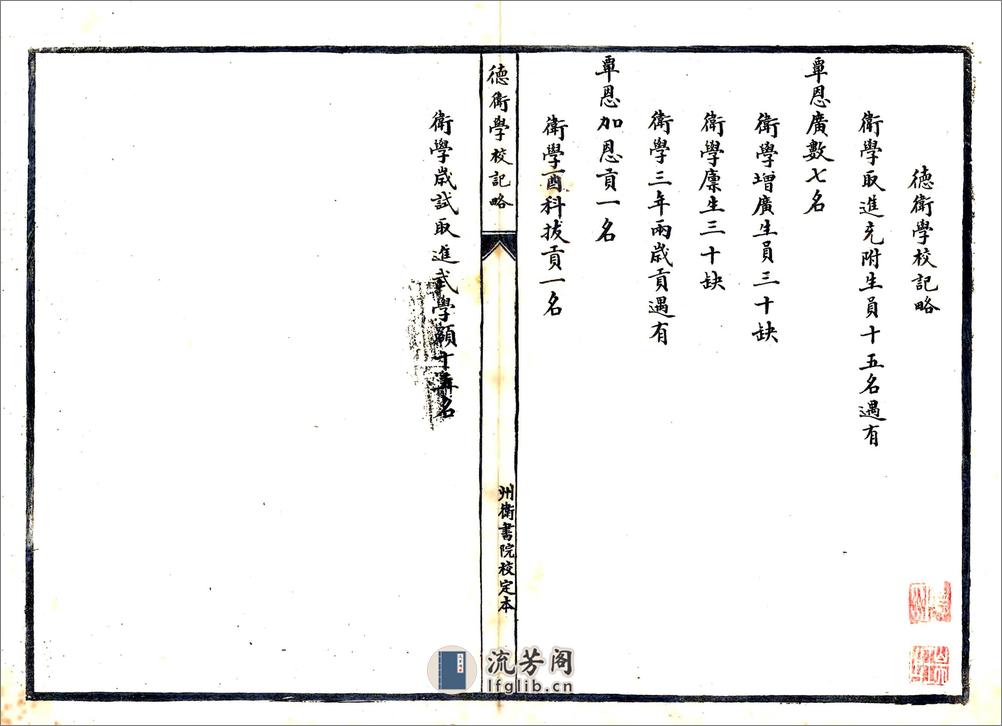 德衛學校記略
衛學取進充附生員十五名遇有
覃恩廣數七名
衛學增廣生員三十缺
衛學廩生三十缺
衛學三年兩歲貢遇有
覃恩加恩貢一名
衛學酉科拔貢一名
德衛學校記略
州衛書院校定本
衛學歲試取進武學額十 名
流芳阁
lfglib.cn